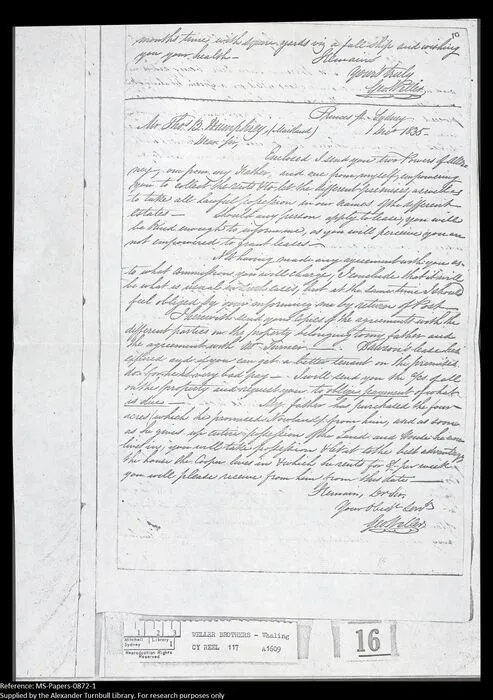 10
months time, with square yards viz a full ship and wishing
you your health —
I remain
Yours truly
Geo Weller
Princes St. Sydney
1 Dec 1835.
Mr. Thos. B. Humphrey, (Maitland)
Dear Sir,
Enclosed I send you two Powers of Attor
ney, one from my Father, and one from myself, empowering
you to collect the rents & to let the different premises, as well as
to take all lawful possession in our names of the different
estates — Should any person apply to lease, you will
be kind enough to inform me, as you will perceive you are
not empowered to grant leases —
Not having made any agreement with you as
to what commission you will charge, I conclude that it will
be what is usual in such cases, but at the same time I should
feel obliged by your informing me by return of Post
I herewith send you Copies of the agreement with the
different parties on the property belonging to my father and
the agreement with Mr. Turner — lease has
expired and if you can get a better tenant on the premises
do so, as he is very bad pay — I will send you the of all
on the property and request you to oblige payment of what
is due — My father has purchased the four
acres which he promised from him, and as soon
as he gives up entire possession of the Land and House he
live in, you will take possession & let it to the best advantage
the house the Cooper lives in & which he rents for 8/- per week
you will please receive from him from this date —
I Remain, Dr Sir,
Your Obedt. Servt.
Geo Weller
Mitchell Library
Sydney
Reproduction Rights
Reserved
WELLER BROTHERS - Whaling
CY REEL 117 A1609
16
Reference: MS-Papers-0872-1
Supplied by the Alexander Turnbull Library. For research purposes only